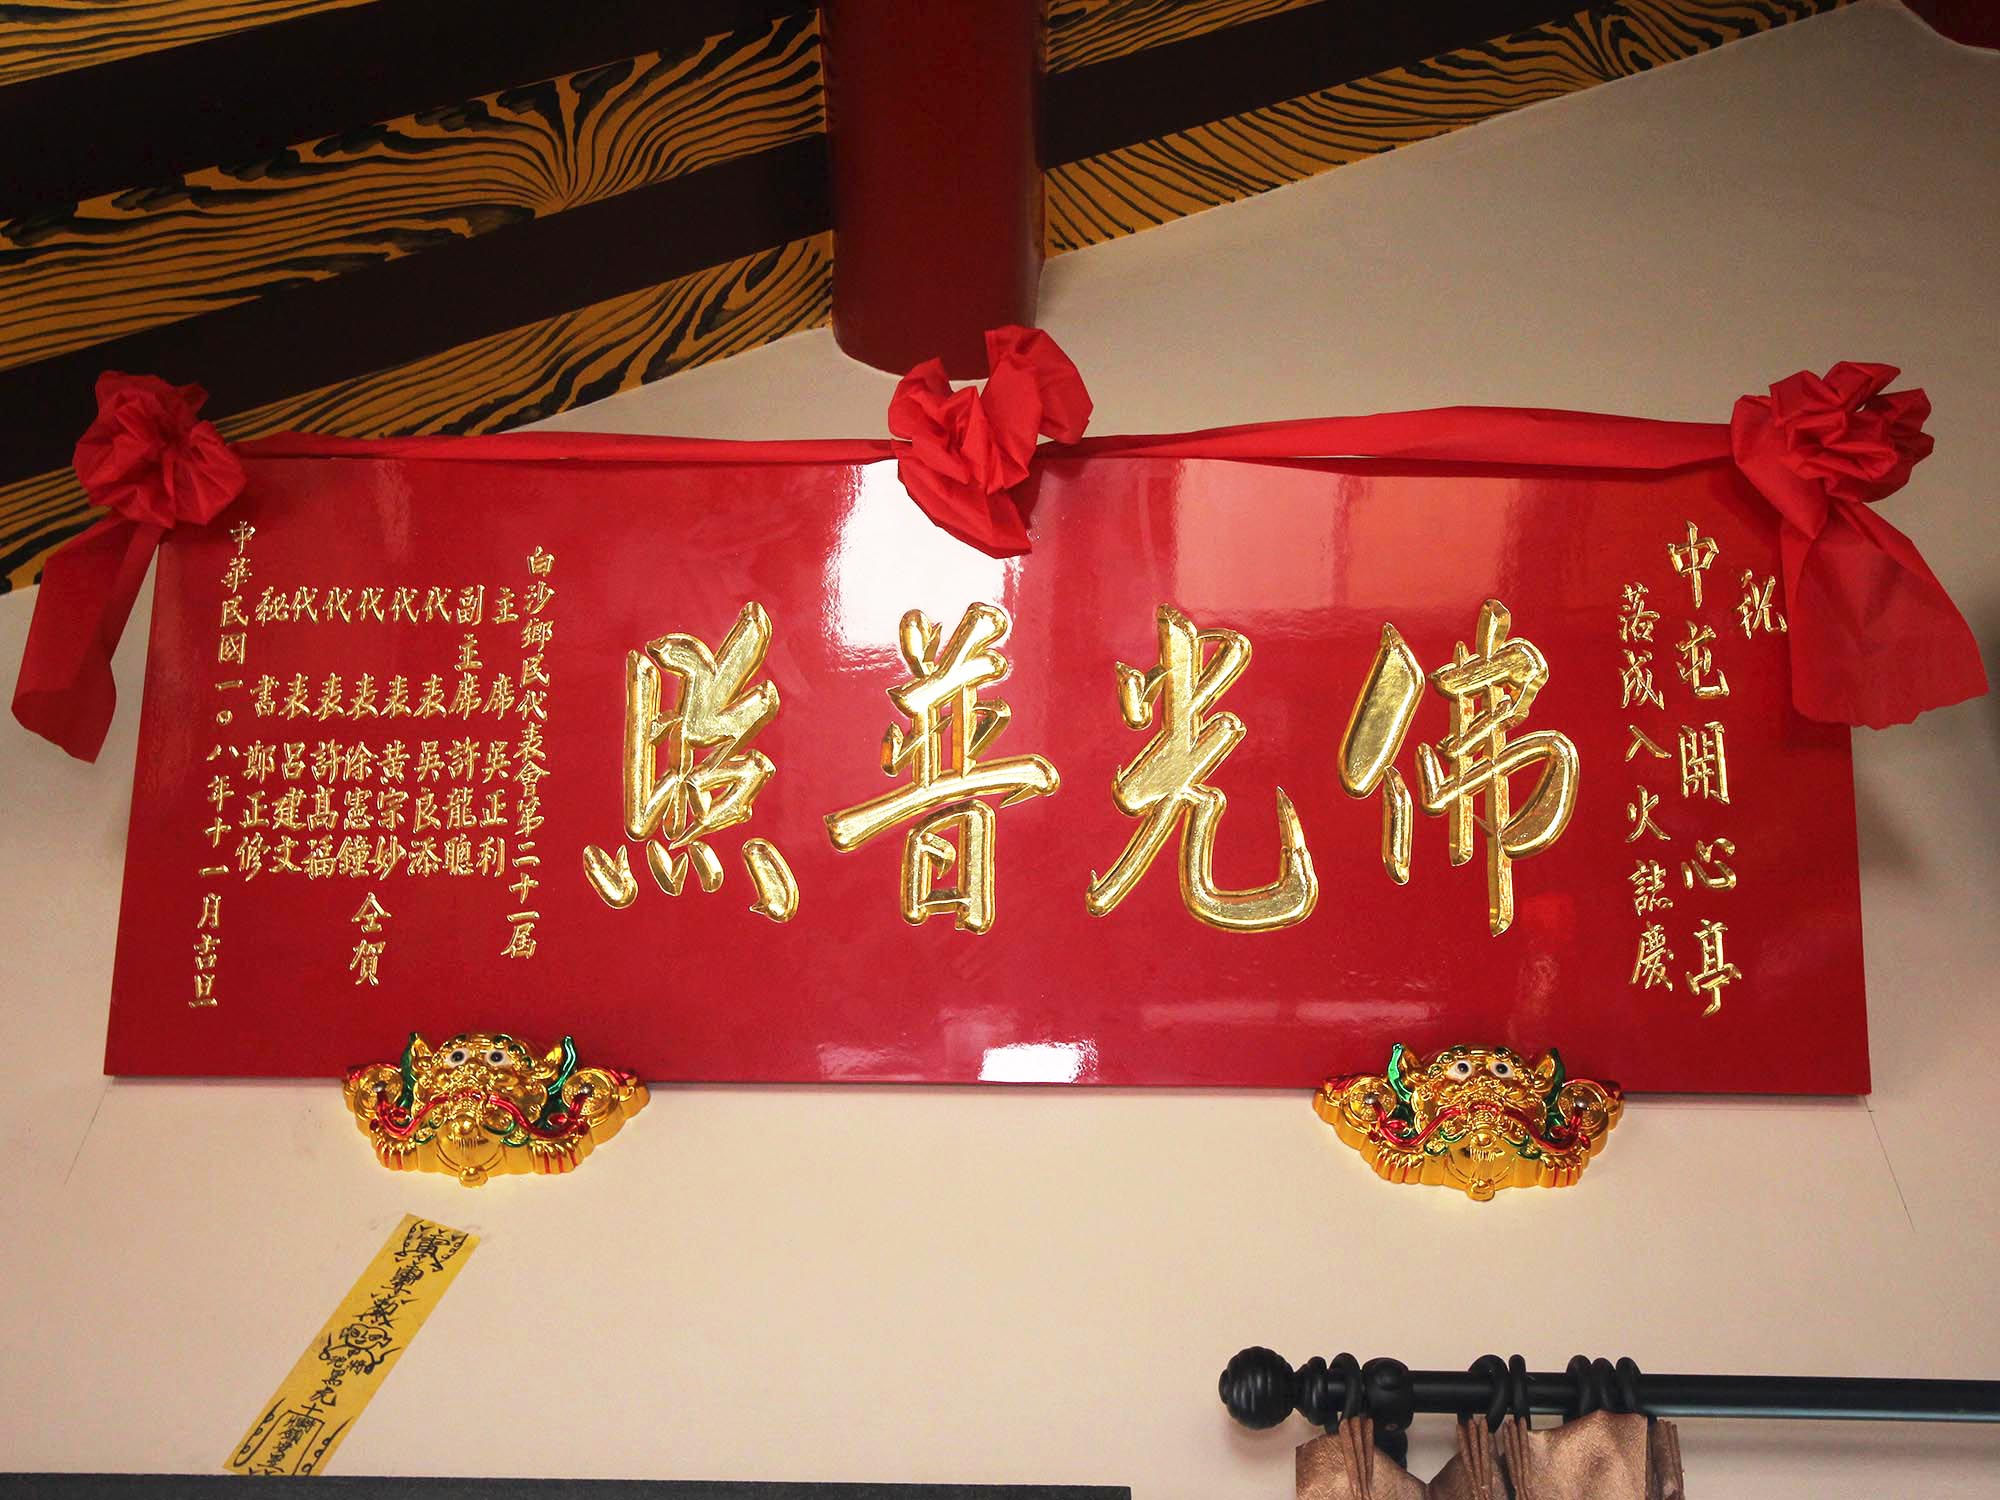 祝
中屯開心亭
落成入火誌慶
佛光普照
白沙鄉民代表會第二十一屆
主席 吳正利
副主席 許龍聰
代表 吳良添
代表 黃宗妙
代表 徐憲鐘
代表 許萬福
代表 呂建文
秘書 鄭正修
仝賀
中華民國一0八年十一月吉旦